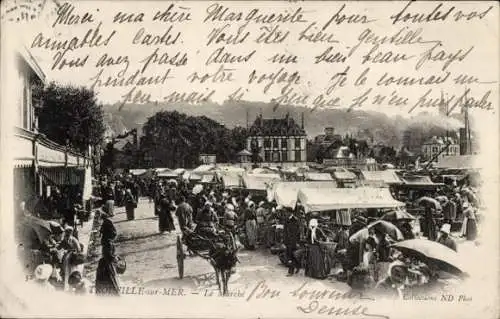 Merci ma chère Marguerite pour toutes vos
aimables Cartes. Vous êtes bien gentille
Vous avez passé dans un bien beau pays
pendant votre voyage je le connais un
peu mais pas que je n'en parle
TROUVILLE-sur-MER. — Le Marché
Collections ND Phot
Bon souvenir
Denise